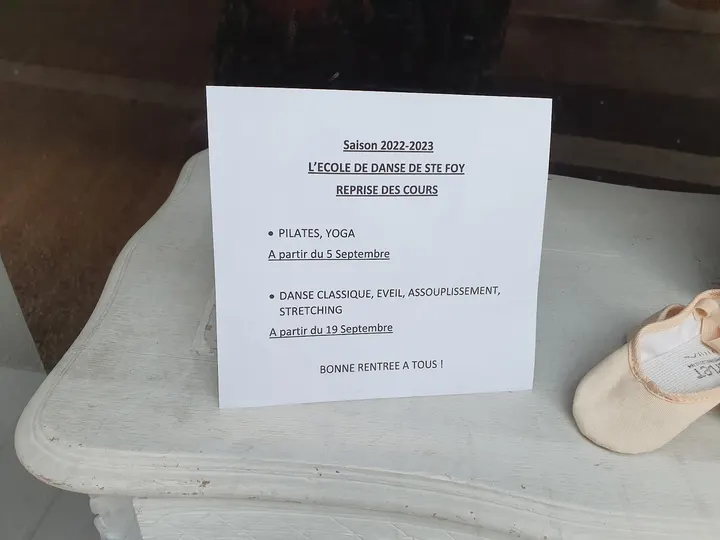 Saison 2022-2023
L'ECOLE DE DANSE DE STE FOY
REPRISE DES COURS
• PILATES, YOGA
A partir du 5 Septembre
• DANSE CLASSIQUE, EVEIL, ASSOUPLISSEMENT,
STRETCHING
A partir du 19 Septembre
BONNE RENTREE A TOUS !